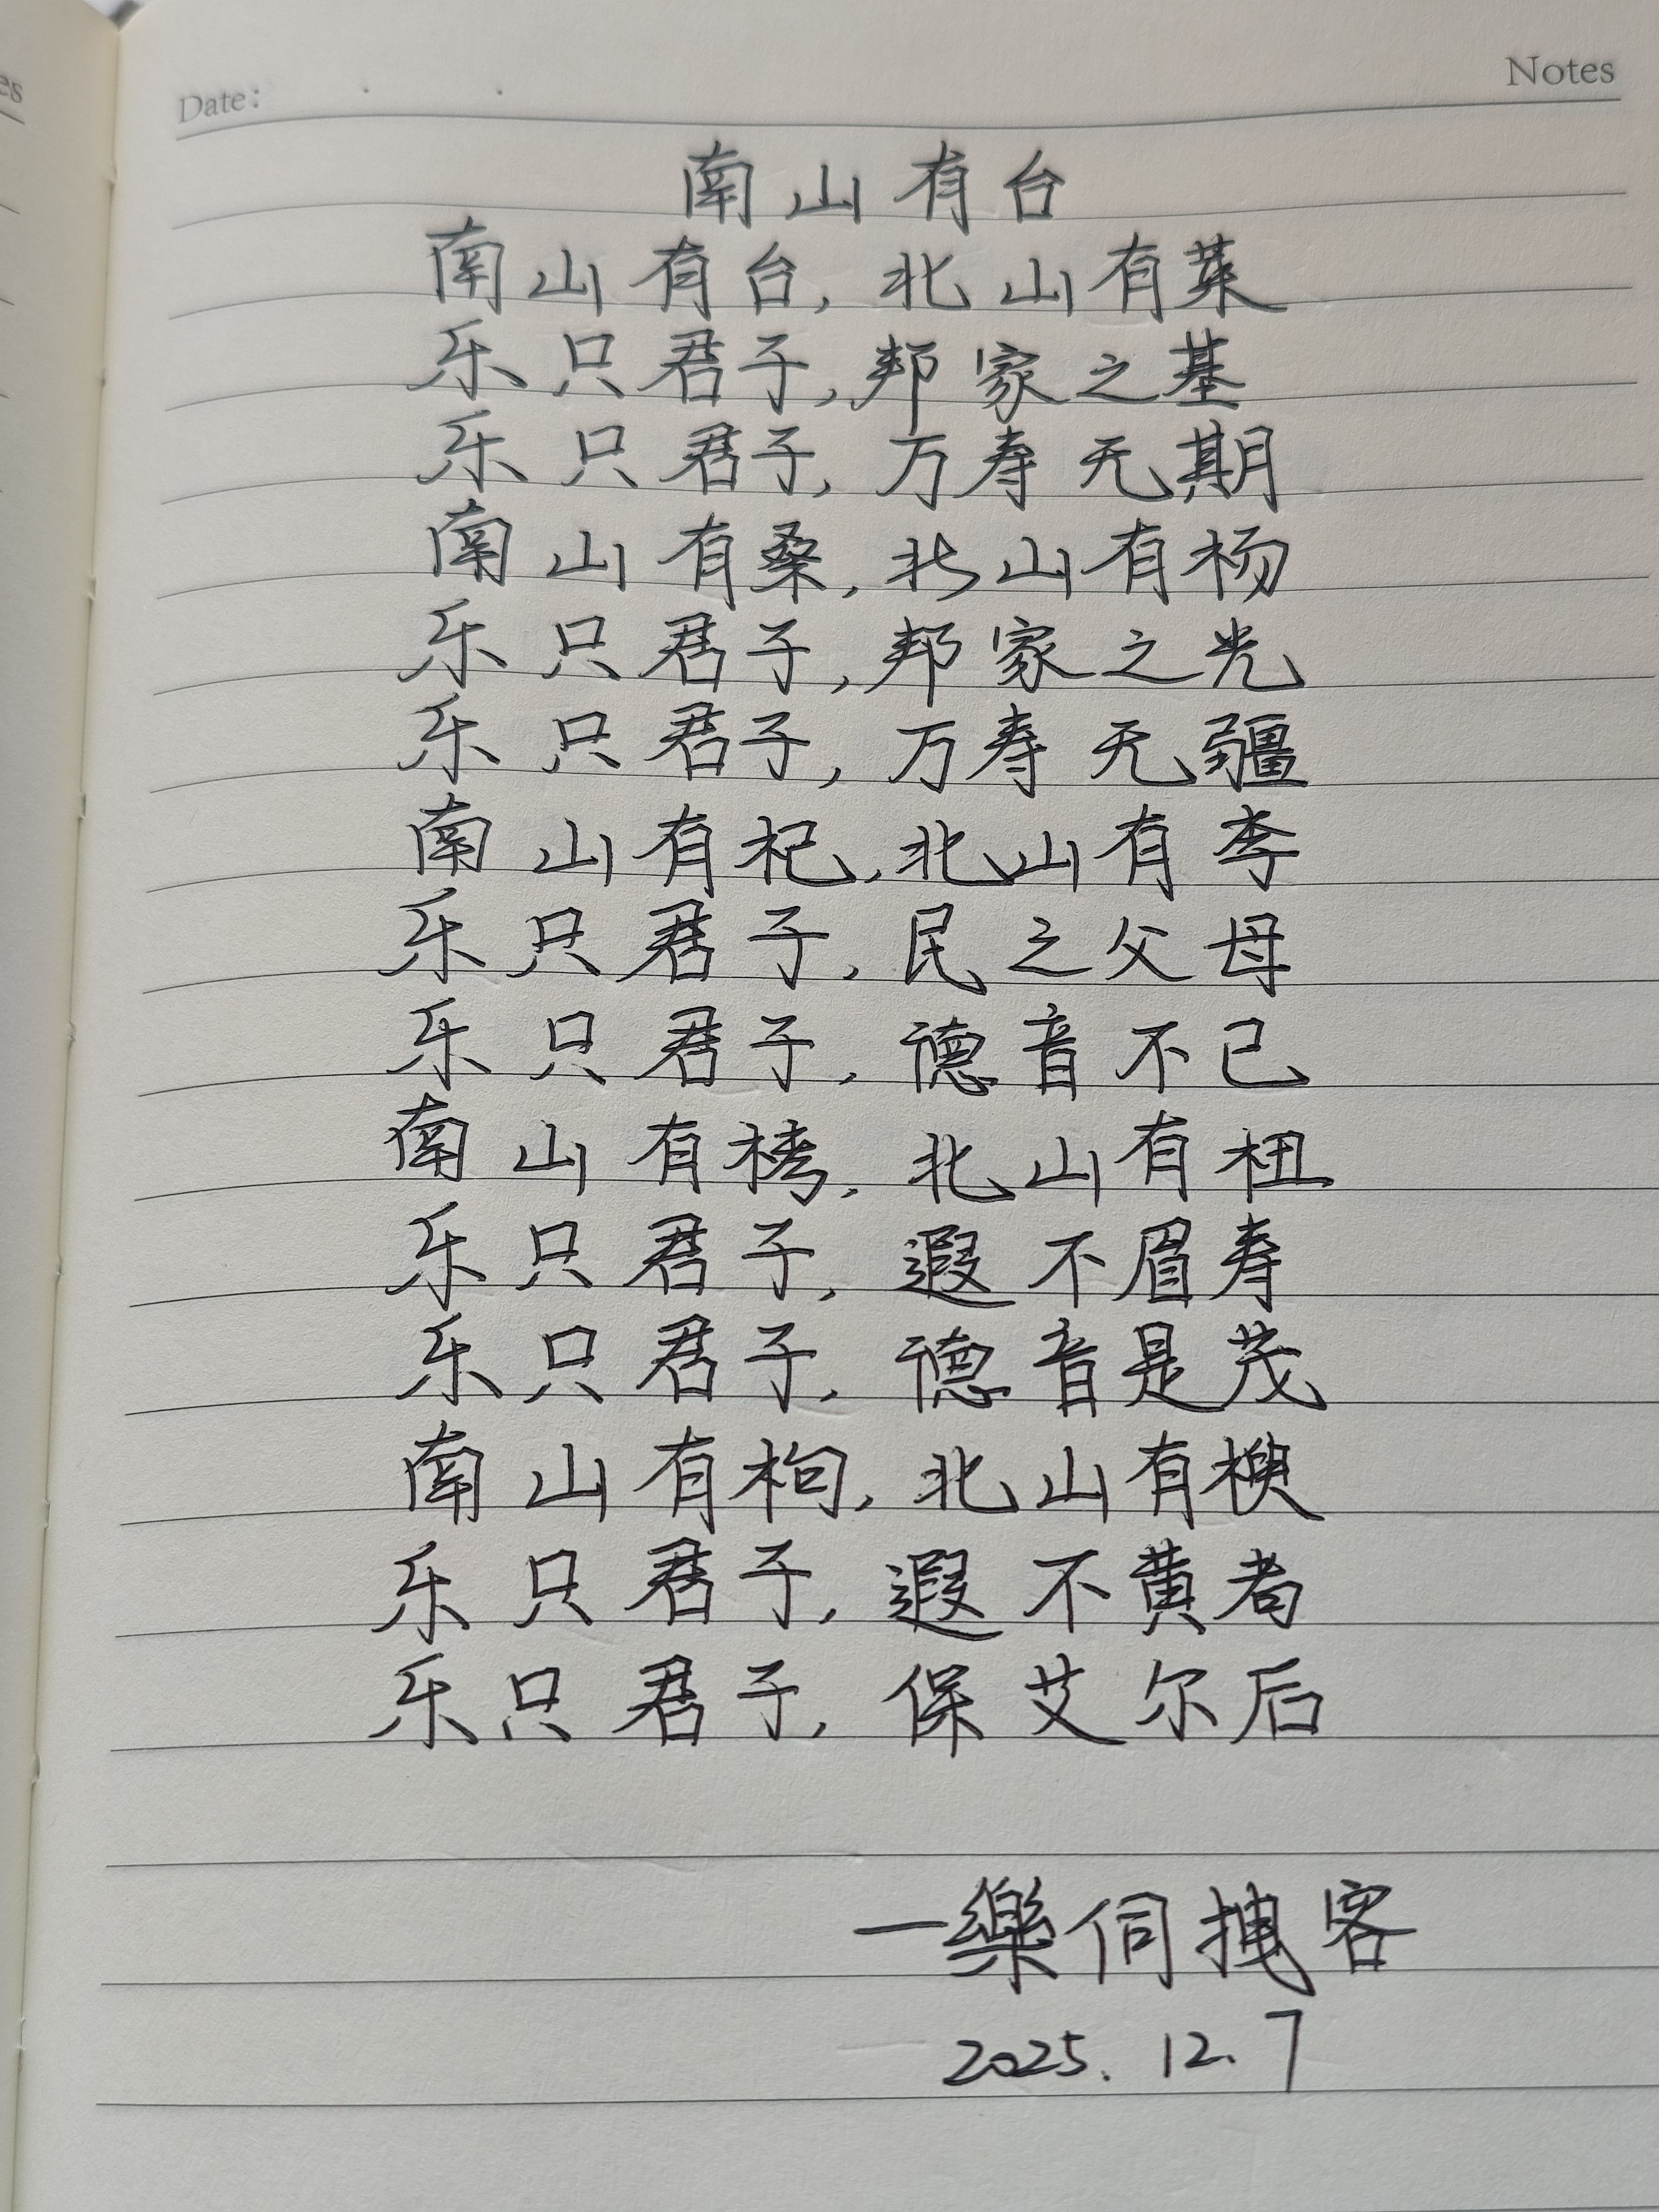 es
Date: . .
Notes
南山有台
南山有台,北山有莱
乐只君子,邦家之基
乐只君子,万寿无期
南山有桑,北山有杨
乐只君子,邦家之光
乐只君子,万寿无疆
南山有杞,北山有李
乐只君子,民之父母
乐只君子,德音不已
南山有栲,北山有杻
乐只君子,遐不眉寿
乐只君子,德音是茂
南山有枸,北山有楰
乐只君子,遐不黄耇
乐只君子,保艾尔后
一樂伺拽客
2025.12.7